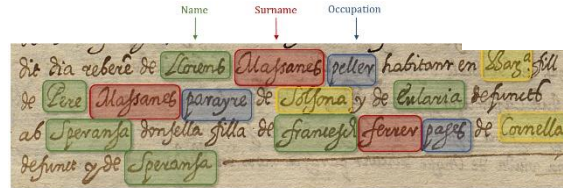 Name Surname Occupation
dit dia rebere de Llorens Massanes peller habitant en Barᵃ: fill
de Pere Massanes parayre de Solsona y de Eularia defuncts
ab Speransa donsella filla de Francesch ferrer pages de Cornella
defunct y de Speransa